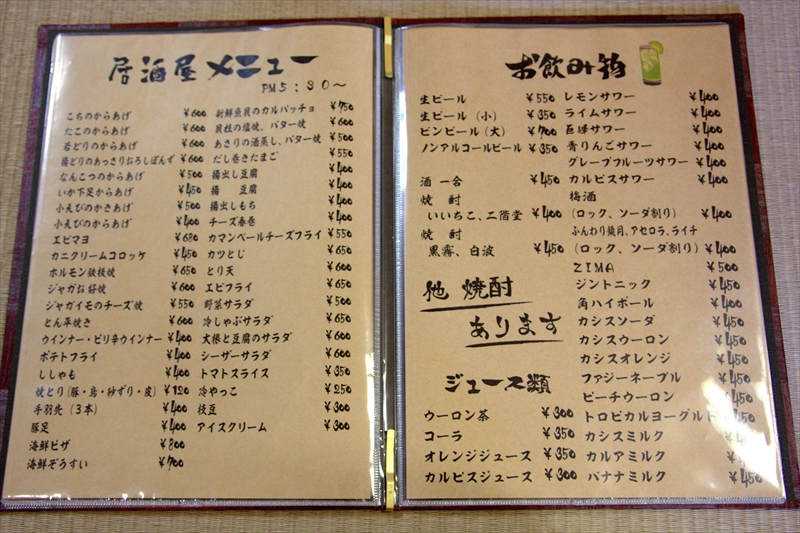 居酒屋メニュー
PM5:30～
こちのからあげ ¥600
たこのからあげ ¥600
若どりのからあげ ¥600
揚どりのあっさりおろしぽんず ¥600
なんこつのからあげ ¥500
いか下足からあげ ¥450
小えびのかきあげ ¥500
小えびのからあげ ¥400
エビマヨ ¥680
カニクリームコロッケ ¥450
ホルモン鉄板焼 ¥650
ジャガお好焼 ¥600
ジャガイモのチーズ焼 ¥550
とん平焼き ¥600
ウインナー・ピリ辛ウインナー ¥400
ポテトフライ ¥400
ししゃも ¥400
焼とり(豚・鳥・砂ずり・皮) ¥120
手羽先(3本) ¥400
豚足 ¥400
海鮮ピザ ¥800
海鮮ぞうすい ¥700
新鮮魚貝のカルパッチョ ¥750
貝柱の塩焼、バター焼 ¥600
あさりの酒蒸し、バター焼 ¥500
だし巻きたまご ¥550
揚出し豆腐 ¥400
揚 豆腐 ¥350
揚出しもち ¥400
チーズ春巻 ¥400
カマンベールチーズフライ ¥550
カツとじ ¥650
とり天 ¥600
エビフライ ¥650
野菜サラダ ¥500
冷しゃぶサラダ ¥650
大根と豆腐のサラダ ¥600
シーザーサラダ ¥600
トマトスライス ¥350
冷やっこ ¥250
枝豆 ¥300
アイスクリーム ¥300
お飲み物
生ビール ¥550
生ビール(小) ¥350
ビンビール(大) ¥700
ノンアルコールビール ¥350
酒 一合 ¥450
焼 酎
いいちこ、二階堂 ¥400
焼 酎
黒霧、白波 ¥450
他 焼酎
あります
ジュース類
ウーロン茶 ¥300
コーラ ¥350
オレンジジュース ¥350
カルピスジュース ¥300
レモンサワー ¥400
ライムサワー ¥400
巨峰サワー ¥400
青りんごサワー ¥400
グレープフルーツサワー ¥400
カルピスサワー ¥400
梅酒
(ロック、ソーダ割り) ¥400
ふんわり鏡月、アセロラ、ライチ
(ロック、ソーダ割り) ¥400
ZIMA ¥500
ジントニック ¥450
角ハイボール ¥400
カシスソーダ ¥450
カシスウーロン ¥450
カシスオレンジ ¥450
ファジーネーブル ¥450
ピーチウーロン ¥450
トロピカルヨーグルト
カシスミルク
カルアミルク
バナナミルク ¥450